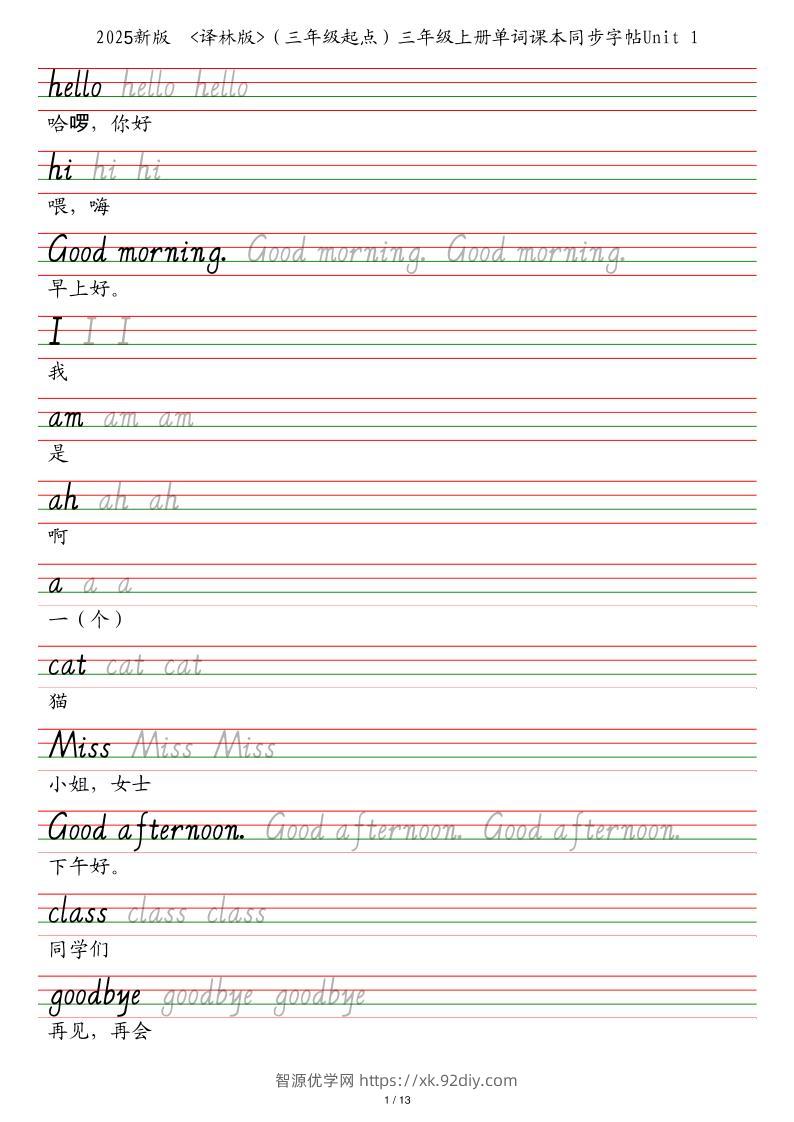 2025新版 <译林版>（三年级起点）三年级上册单词课本同步字帖Unit 1
hello hello hello
哈啰，你好
hi hi hi
喂，嗨
Good morning. Good morning. Good morning.
早上好。
I I I
我
am am am
是
ah ah ah
啊
a a a
一（个）
cat cat cat
猫
Miss Miss Miss
小姐，女士
Good afternoon. Good afternoon. Good afternoon.
下午好。
class class class
同学们
goodbye goodbye goodbye
再见，再会
智源优学网 https://xk.92diy.com
1 / 13